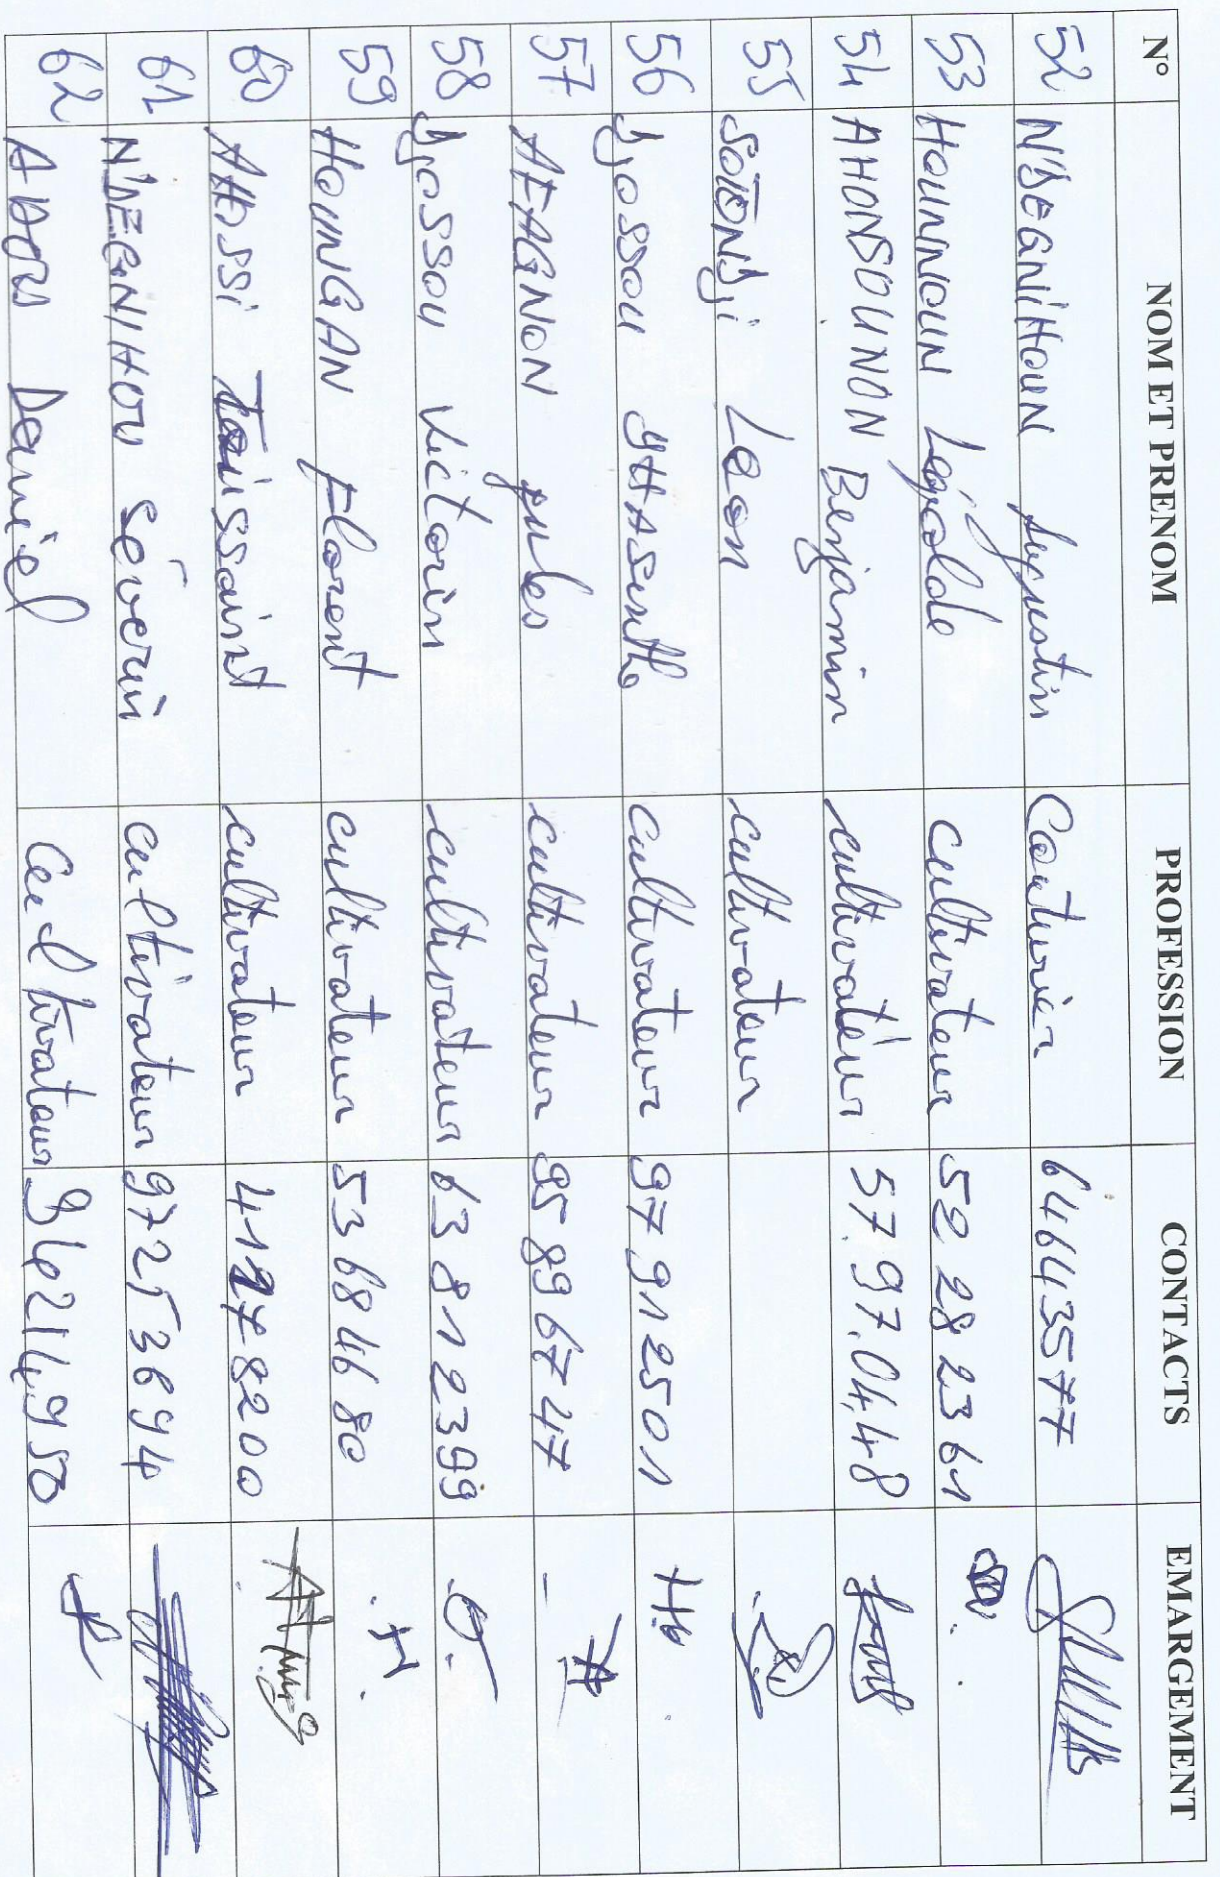 N° NOM ET PRENOM PROFESSION CONTACTS EMARGEMENT
52 N'DEGNIHOUN Augustin Couturier 64643577
53 HOUNNOUN Léopolde cultivateur 52 28 23 61
54 AHONSOUNON Benjamin cultivateur 57.97.04.48
55 SOTONDji Leon cultivateur
56 Djossou cultivateur 97 91 25 01
57 AFAGNON jules cultivateur 95 89 67 47
58 Djossou Victorin cultivateur 63 81 23 99
59 HOUNGAN Florent cultivateur 53 68 46 80
60 AHOSSi Toussaint cultivateur 8200
61 N'DEGNIHOU Séverin cultivateur 97253694
62 ADOU Daniel Cultivateur